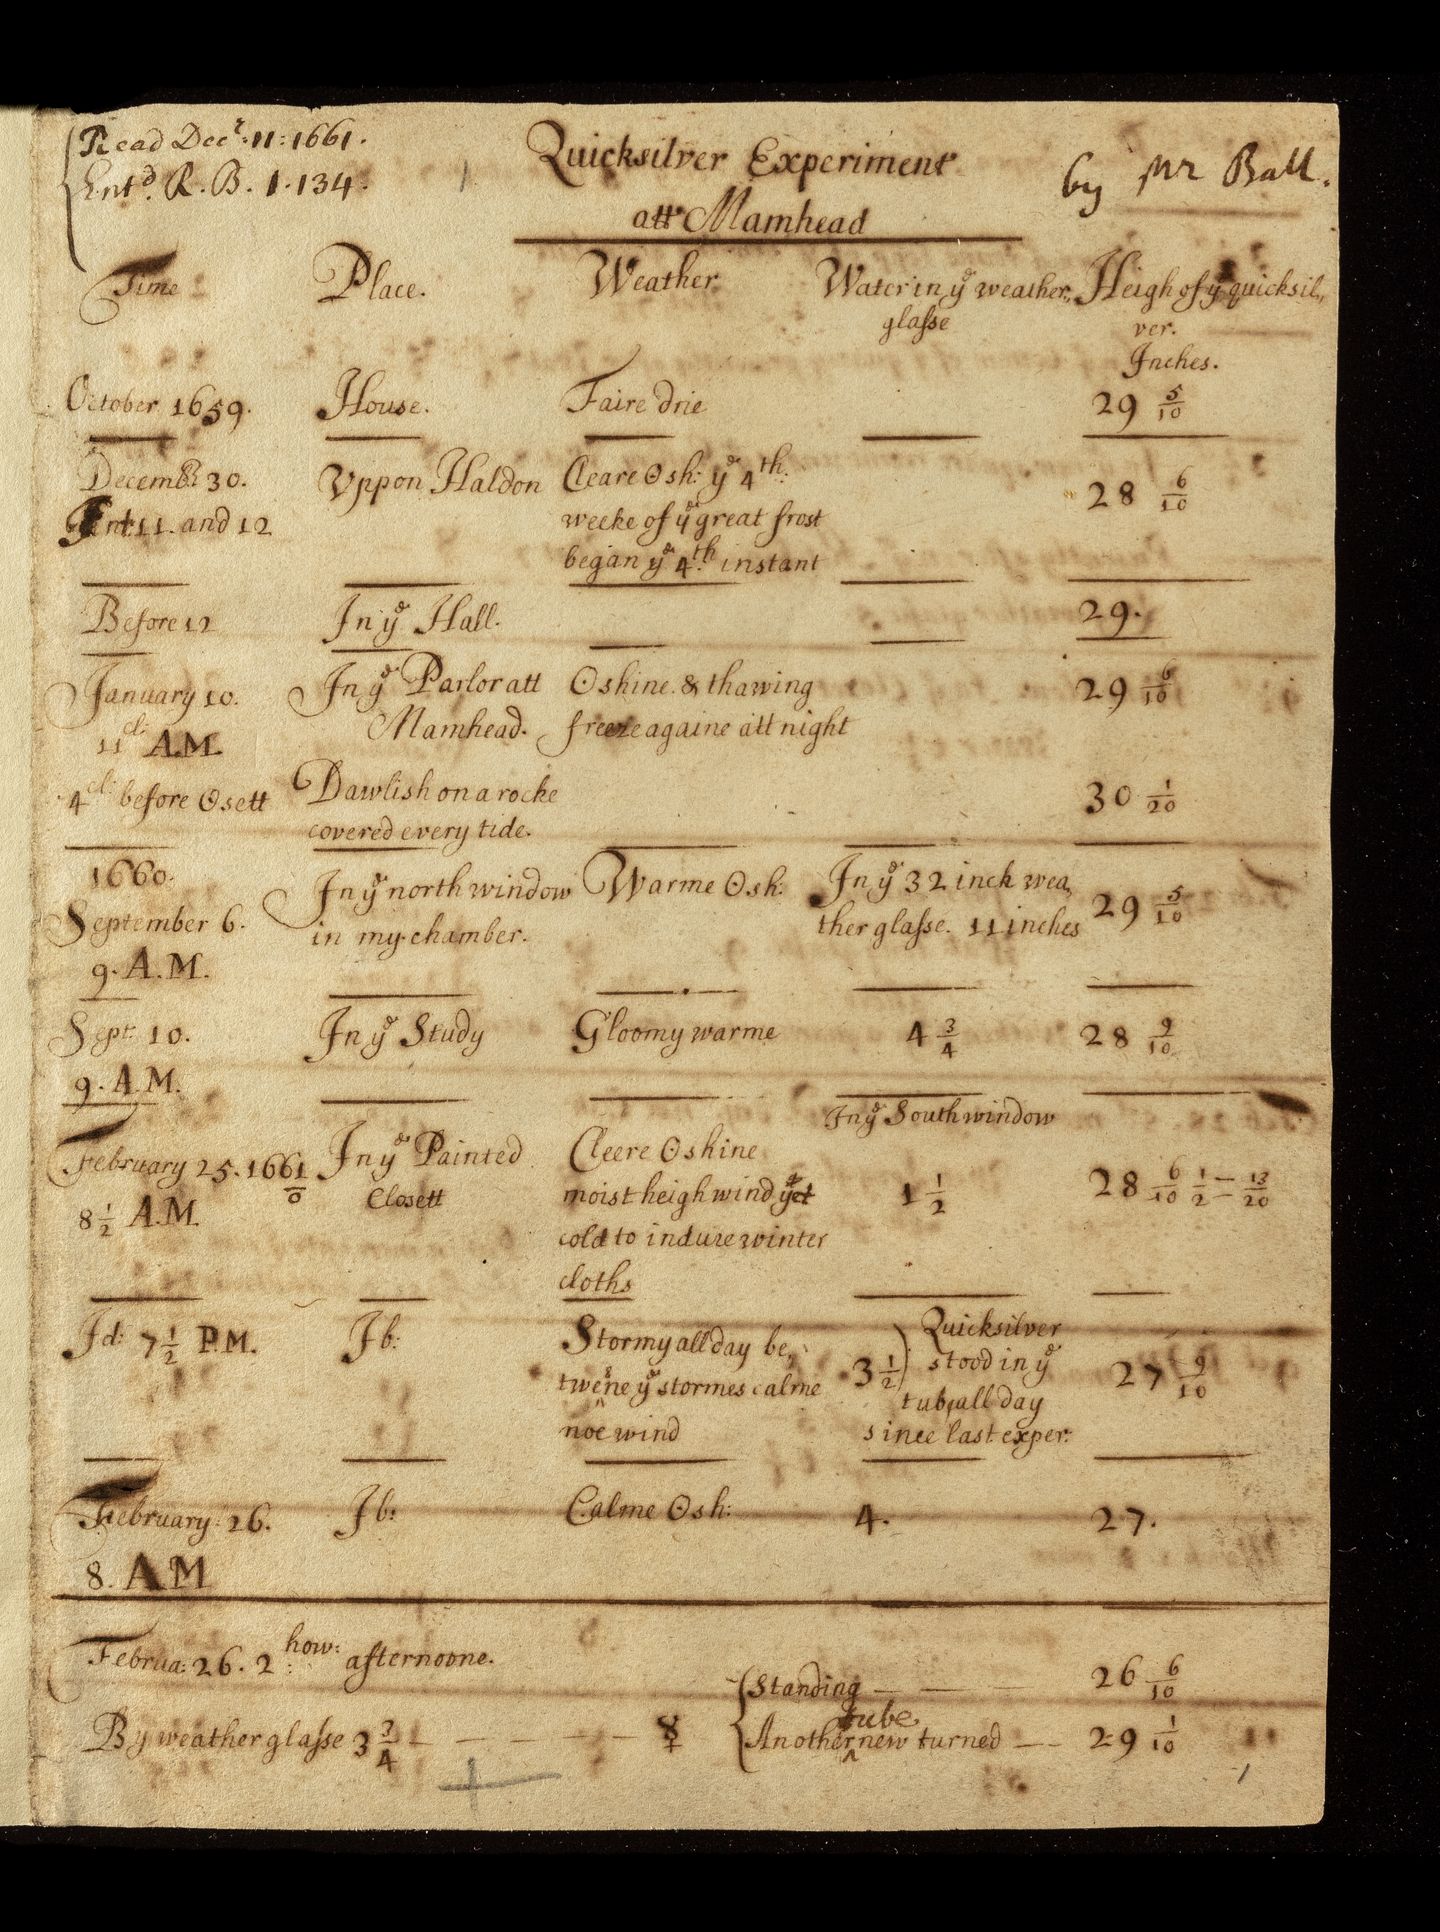 Read Decr. 11: 1661.
Entd. R. B. 1. 134.
Quicksilver Experiment
att Mamhead
by Mr Ball.
Time
Place.
Weather
Water in ye weather
glasse
Heigh of ye quicksil
ver.
Inches.
October 1659.
House.
Faire drie
29 5/10
Decemb. 30.
11. and 12
Vppon Haldon
Cleare ʘsh: ye 4th.
weeke of ye great frost
began ye 4th. instant
28 6/10
Before 12
In ye Hall.
29.
January 10.
11 cl. A.M.
In ye Parlor att
Mamhead.
ʘshine & thawing
freeze againe att night
29 6/10
4 cl. before ʘsett
Dawlish on a rocke
covered every tide.
30 1/20
1660.
September 6.
9. A.M.
In ye north window
in my chamber.
Warme ʘsh:
In ye 32 inch wea
ther glasse. 11 inches
29 5/10
Sept. 10.
9. A.M.
In ye Study
Gloomy warme
4 3/4
28 9/10
February 25. 1661/0
8 1/2 A.M.
In ye Painted
Closett
Cleere ʘshine
moist heigh wind yet
cold to indure winter
cloths
In ye South window
1 1/2
28 6/10 1/2 = 13/20
Id: 7 1/2 P.M.
Ib:
Stormy all day be,
twene ye stormes calme
noe wind
3 1/2)
Quicksilver
stood in ye
tub, all day
since last exper:
27 9/10
February: 26.
8. AM
Ib:
Calme ʘsh:
4.
27.
Februa: 26. 2 how: afternoone.
By weather glasse 3 3/4 — — — — — ☿
{Standing — — —
26 6/10
Another ^tube new turned — —
29 1/10